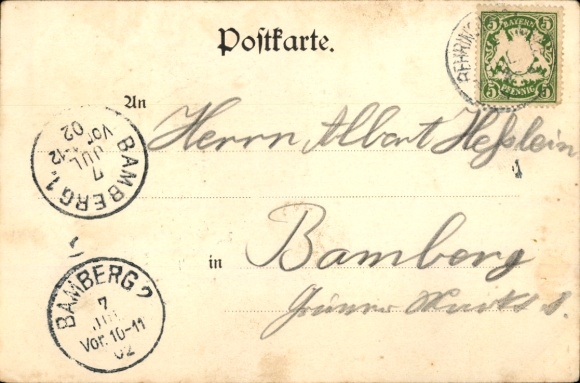 Postkarte.
5 BAYERN 5
5 PFENNIG 5
An
Herrn Albert Hesslein
BAMBERG 1.
7 JUL
Vor. 11-12
02
in Bamberg
Grüner Markt
BAMBERG 2
7
JUL
Vor. 10-11
02